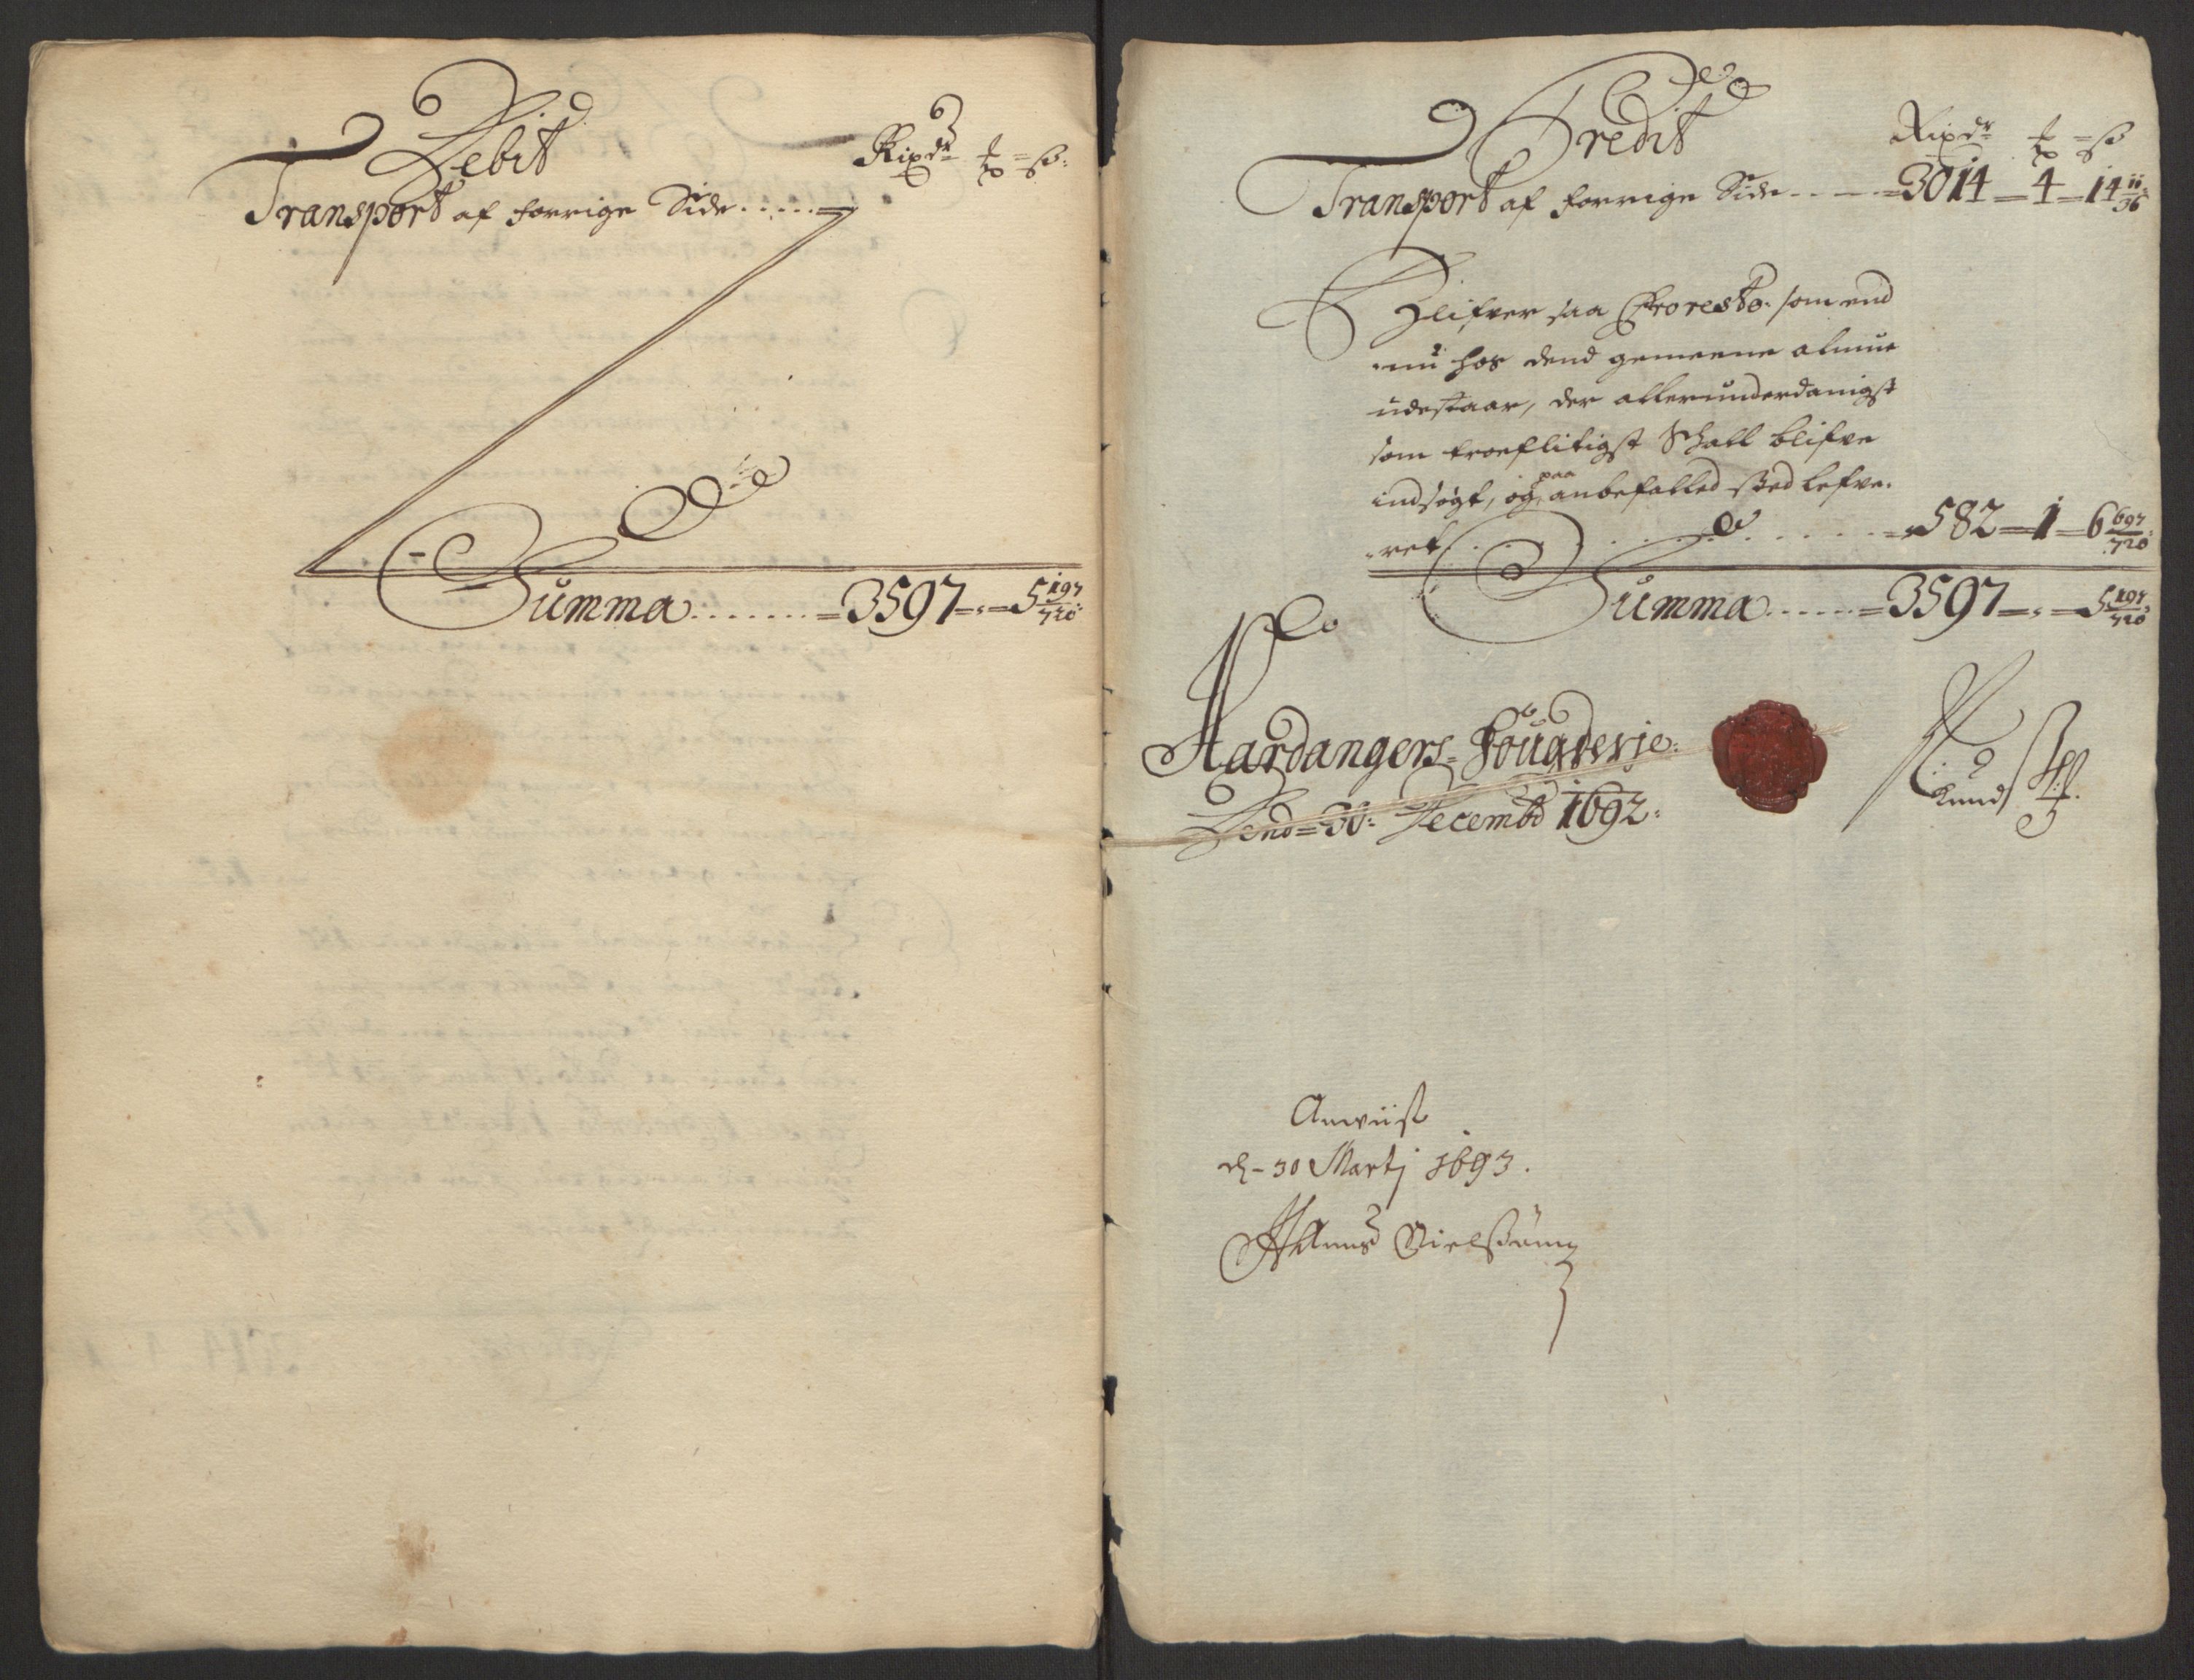 Debit
Rixdr = ß:
Transport af forrige Side.....=
Summa.......=3597=.=5 197/720:
Credit
Rixdr = ß
Transport af forrige Side.....=3014=4=14 11/36:
Blifver saa Pro resto. som end
nu hos dend gemeene almue
udestaar, der allerunderdanigst
som troeflitigst Schall blifve
indsøgt, og paa anbefalled sted lefve-
ret..........=582=1=6 697/720:
Summa......=3597=.=5 197/720:
Hardangers= Fougderje:
Dend=30: Decembr 1692:
Knud
Anviist
d=30 Martj 1693.
Hanns Nielssønn